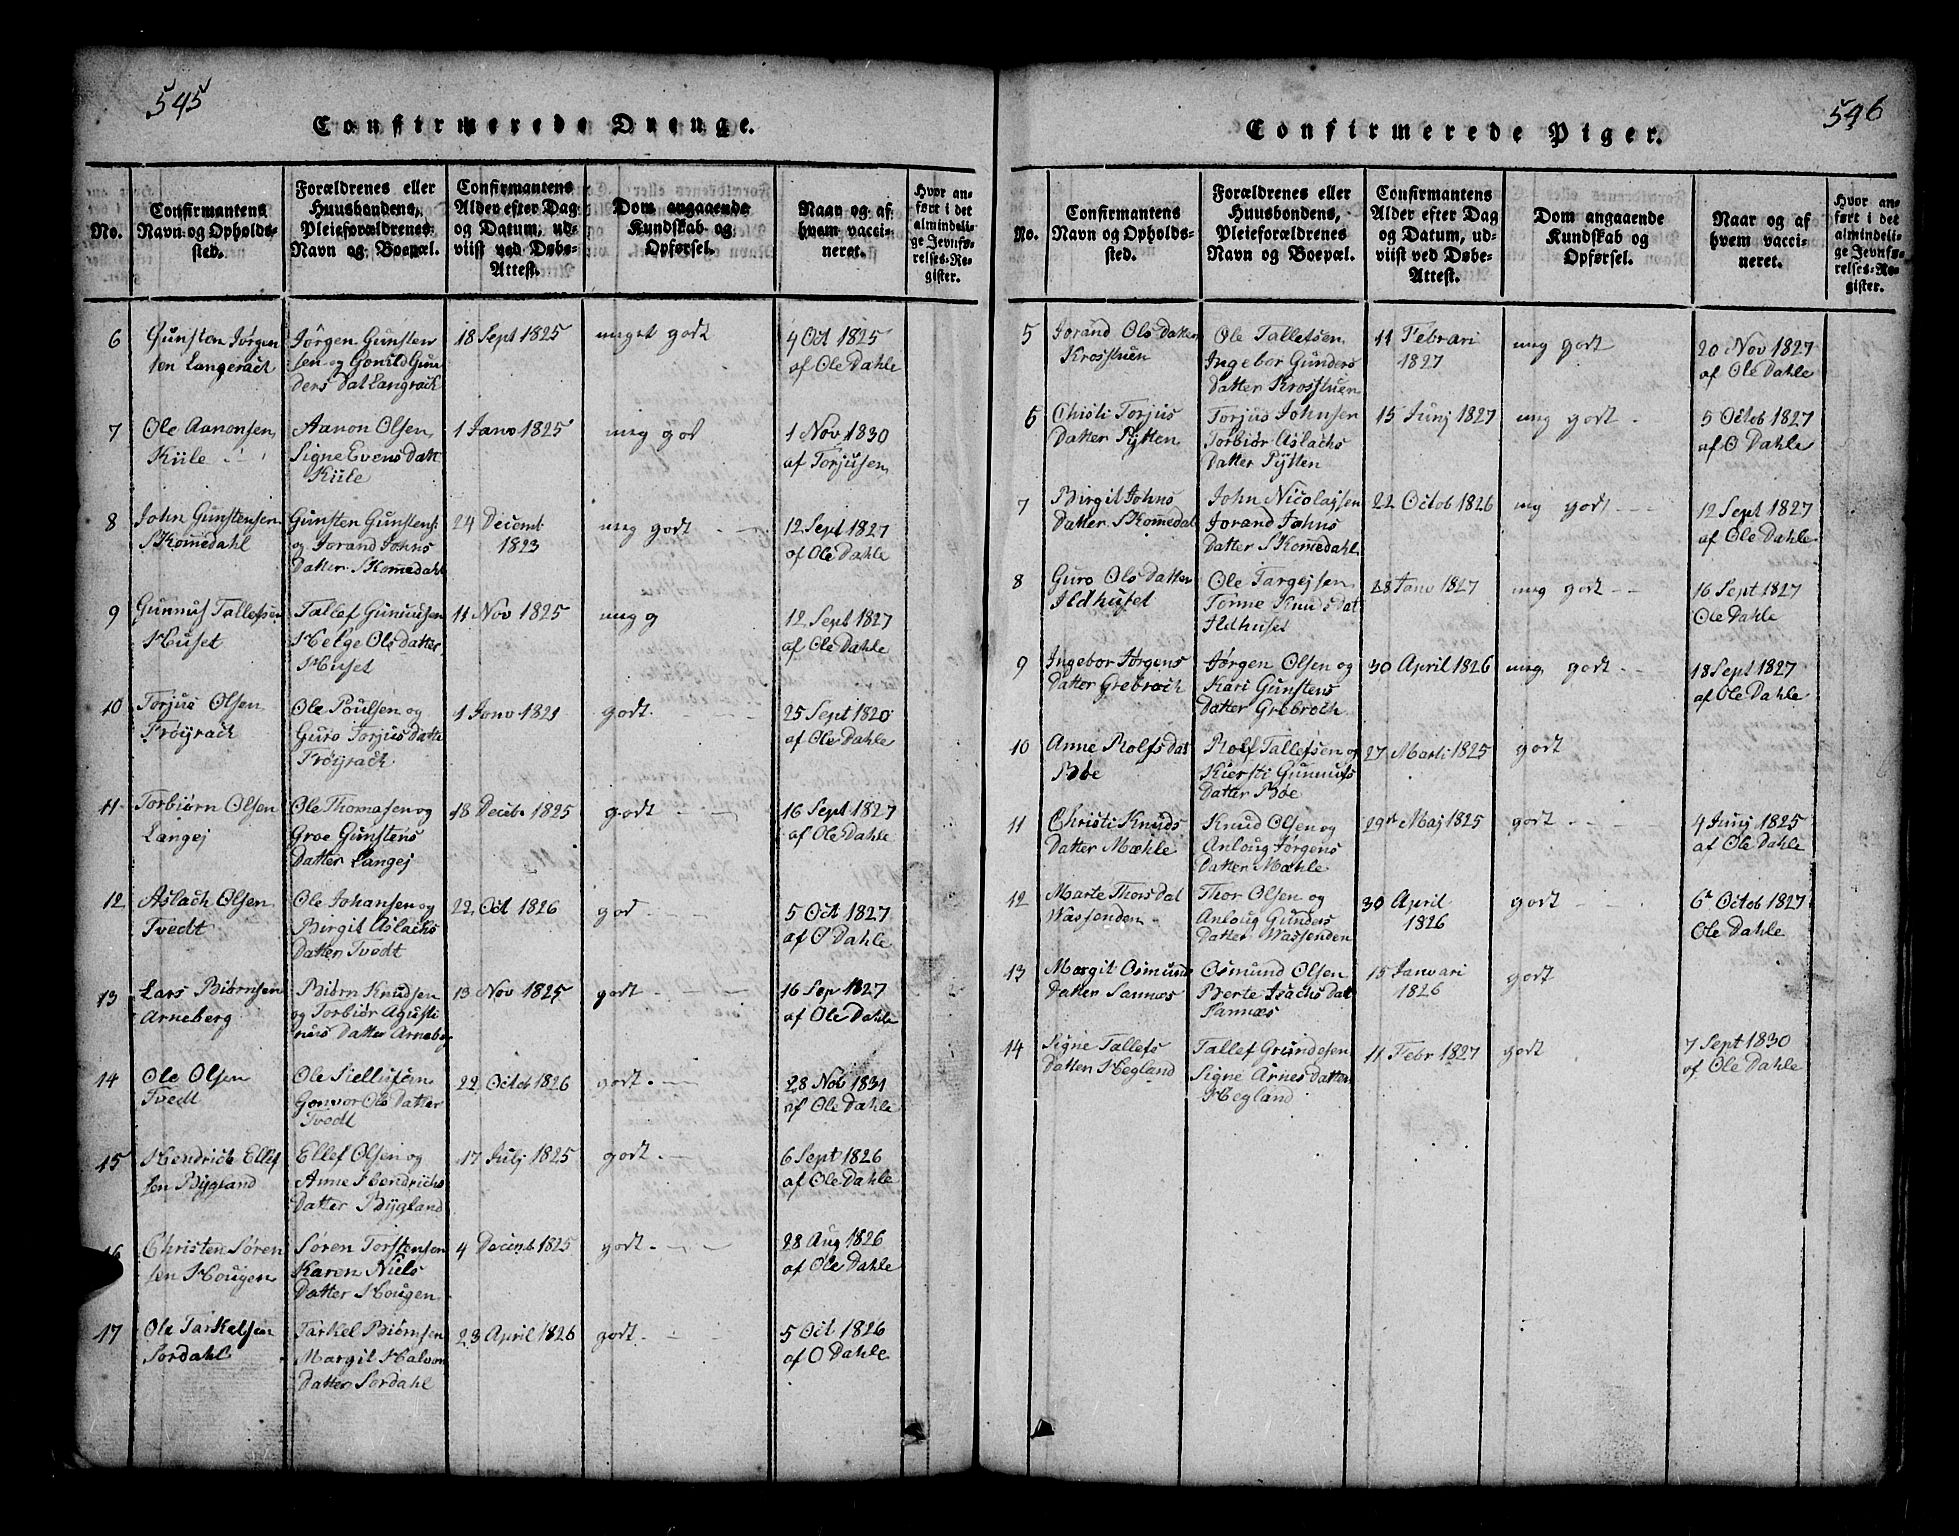 545
Confirmerede Drenge.
No.
Confirmantens
Navn og Opholds-
sted.
Forældrenes eller
Huusbondens,
Pleieforældrenes
Navn og Boepæl.
Confirmantens
Alder efter Dag
og Datum, ud-
viist ved Døbe-
Attest.
Dom angaaende
Kundskab og
Opførsel.
Naar og af
hvem vacci-
neret.
Hvor an-
ført i det
almindeli-
ge Jevnfø-
relses-Re-
gister.
6
Gunsten Jørgen
sen Langerach
Jørgen Gunsten
sen og Gonild Gun
Ders Dat Langrach
18 Sept 1825
meget godt
4 Oct 1825
af Ole Dahle
7
Ole Aanonsen
Kiile
Aanon Olsen
Signe Evens Datt
Kiile
1 Janv 1825
meg god
1 Nov 1830
af Torjusen
8
John Gunstensen
Skomedahl
Gunsten Gunstens
og Jorand Johns
Datter Skomedahl
24 Decemb
1823
meg godt
12 Sept 1827
af Ole Dahle
9
Gunnuf Tallefsen
Huset
Tallef Gunnufsen
Helge Ols datter
Huset
11 Nov 1825
meg g
12 Sept 1827
af Ole Dahle
10
Torjus Olsen
Frøyrach
Ole Poulsen og
Guro Torjus Datte
Frøyrach
1 Janv 1821
godt
25 Sept 1820
af Ole Dahle
11
Torbiørn Olsen
Langej
Ole Thomasen og
Groe Gunstens
Datter Langej
18 Decebr 1825
godt
16 Sept 1827
af Ole Dahle
12
Aslach Olsen
Tvedt
Ole Johansen og
Birgit Aslachs
Datter Tvedt
22 Oct 1826
god
5 Oct 1827
af O Dahle
13
Lars Biørnsen
Arneberg
Biørn Knudsen
og Torbiør Agusti
nus Datter Arneberg
13 Nov 1825
godt
16 Sep 1827
af Ole Dahle
14
Ole Olsen
Tvedt
Ole Siellufsen
Gonvor Ols Datter
Tvedt
22 Octob 1826
godt
28 Nov 1831
af Ole Dahle
15
Hendrich Ellef
sen Bygland
Ellef Olsen og
Anne Hendrichs
Datter Bygland
17 Julj 1825
godt
6 Sept 1826
af Ole Dahle
16
Christen Søren
sen Hougen
Søren Torstensen
Karen Niels
Datter Hougen
4 Decemb 1825
godt
28 Aug 1826
af Ole Dahle
17
Ole Tarkelsen
Sordahl
Tarkel Biørnsen
Margit Halvor
Datter Sordahl
23 April 1826
godt
5 Oct 1826
af O Dahle
546
Confirmerede Piger.
No.
Confirmantens
Navn og Opholds-
sted.
Forældrenes eller
Huusbondens,
Pleieforældrenes
Navn og Boepæl.
Confirmantens
Alder efter Dag
og Datum, ud-
viist ved Døbe-
Attest.
Dom angaaende
Kundskab og
Opførsel.
Naar og af
hvem vacci-
neret.
Hvor an-
ført i det
almindeli-
ge Jevnfø-
relses-Re-
gister.
5
Jorand Ols Datter
Krosstuen
Ole Tallefsen
Ingebor Gunders
Datter Krosstuen
11 Febrari
1827
meg godt
20 Nov 1827
af Ole Dahle
6
Christi Torjus
Datter Pytten
Torjus Johnsen
Torbiør Aslachs
Datter Pytten
15 Junj 1827
meg godt
5 Octob 1827
af O Dahle
7
Birgit Johns
Datter Skomedal
John Nicolajsen
Jorand Johns
Datter Skomedahl
22 Octob 1826
mig godt
12 Sept 1827
af Ole Dahle
8
Guro Ols Datter
Ildhuset
Ole Targejsen
Tonne Knuds dat
Ildhuset
28 Janv 1827
meg godt
16 Sept 1827
Ole Dahle
9
Ingebor Jørgens
Datter Grebroch
Jørgen Olsen og
Kari Gunstens
Datter Grebroch
30 April 1826
meg godt
18 Sept 1827
af Ole Dahle
10
Anne Rolfs dat
Bøe
Rolf Tallefsen og
Kiersti Gunnufs
Datter Bøe
27 Marti 1825
godt
11
Christi Knuds
Datter Mæhle
Knud Olsen og
Anloug Jørgens
Datter Mæhle
29de Maj 1825
godt
4 Junj 1825
af Ole Dahle
12
Marte Thors Dat
Wassenden
Thor Olsen og
Anloug Gunders
Datter Wassenden
30 April
1826
godt
6 Octob 1827
Ole Dahle
13
Margit Osmunds
Datter Sannæs
Osmund Olsen
Berte Isachs Dat
Sannæs
15 Januari
1826
godt
14
Signe Tallefs
Datter Hegland
Tallef Grundesen
Signe Arnes datter
Hegland
11 Febr 1827
godt
7 Sept 1830
af Ole Dahle